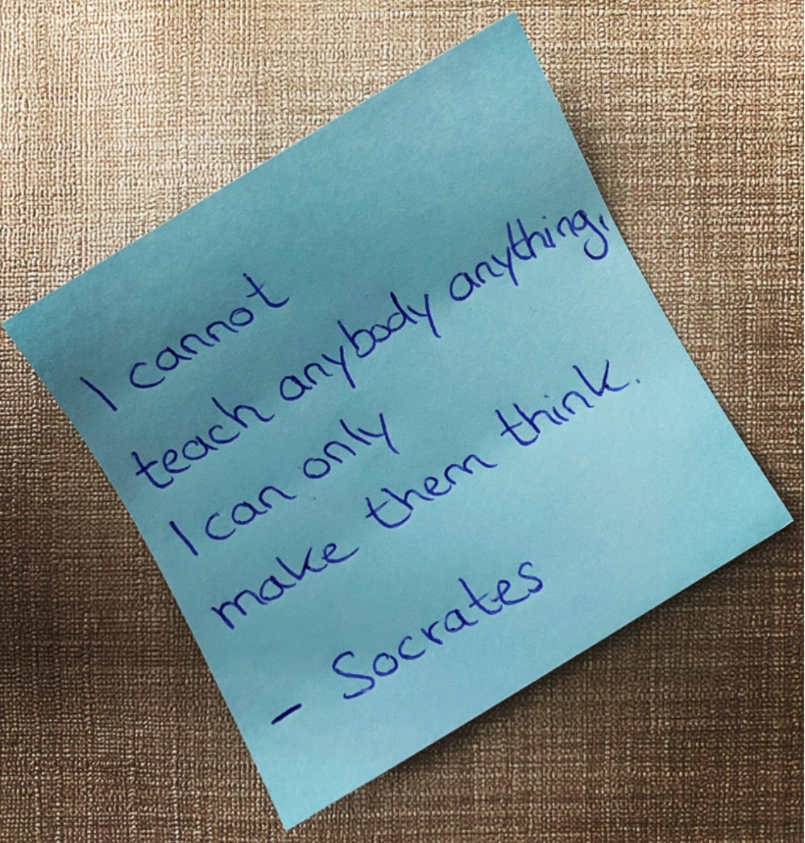 I cannot
teach anybody anything,
I can only
make them think.
- Socrates